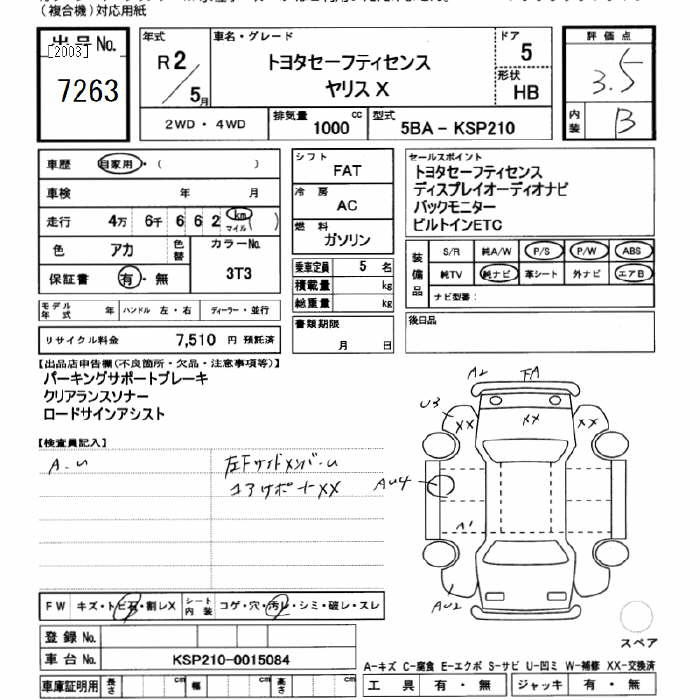 （複合機）対応用紙
出品No.
[2003]
7263
年式
R2／5月
車名・グレード
トヨタセーフティセンス
ヤリス X
ドア
5
形状
HB
評価点
3.5
内装
B
2WD・4WD
排気量
1000 cc
型式
5BA－KSP210
車歴 自家用・（ ）
車検 年 月
走行 4万 6千 6 6 2 km マイル（ ）
色 アカ 色替 カラーNo. 3T3
保証書 有・無
モデル年式 年 ハンドル 左・右 ディーラー・並行
リサイクル料金 7,510 円 預託済
シフト
FAT
冷房
AC
燃料
ガソリン
乗車定員 5 名
積載量 kg
総重量 kg
書類期限
月 日
セールスポイント
トヨタセーフティセンス
ディスプレイオーディオナビ
バックモニター
ビルトインETC
装備品
S/R 純A/W P/S P/W ABS
純TV 純ナビ 革シート 外ナビ エアB
ナビ型番：
後日品
【出品店申告欄（不良箇所・欠品・注意事項等）】
パーキングサポートブレーキ
クリアランスソナー
ロードサインアシスト
【検査員記入】
A-U 左Fサイドメンバ-U
コアサポートXX
A2 FA
U3 XX XX XX
AU4
A1
AU2
FW キズ・トビ石・割レX シート内装 コゲ・穴・汚レ・シミ・破レ・スレ
登録No.
車台No. KSP210-0015084
車庫証明用 長さ cm 幅 cm 高さ cm
スペア
A－キズ C－腐食 E－エクボ S－サビ U－凹ミ W－補修 XX－交換済
工具 有・無 ジャッキ 有・無